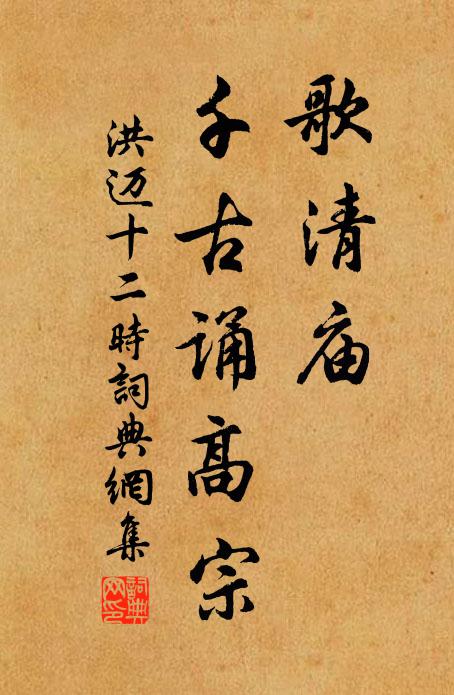 歌清庙
千古诵高宗
洪迈十二時詞典網集
詞典網印